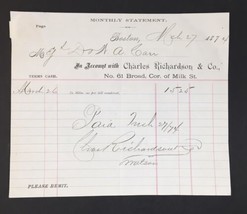 MONTHLY STATEMENT.
Page
Boston, Mch 27 1874
M
In Account with Charles Richardson & Co.,
TERMS CASH. No. 61 Broad, Cor. of Milk St.
March 26 15 25
Paid Mch 27/74
Chas Richardson & Co
PLEASE REMIT.